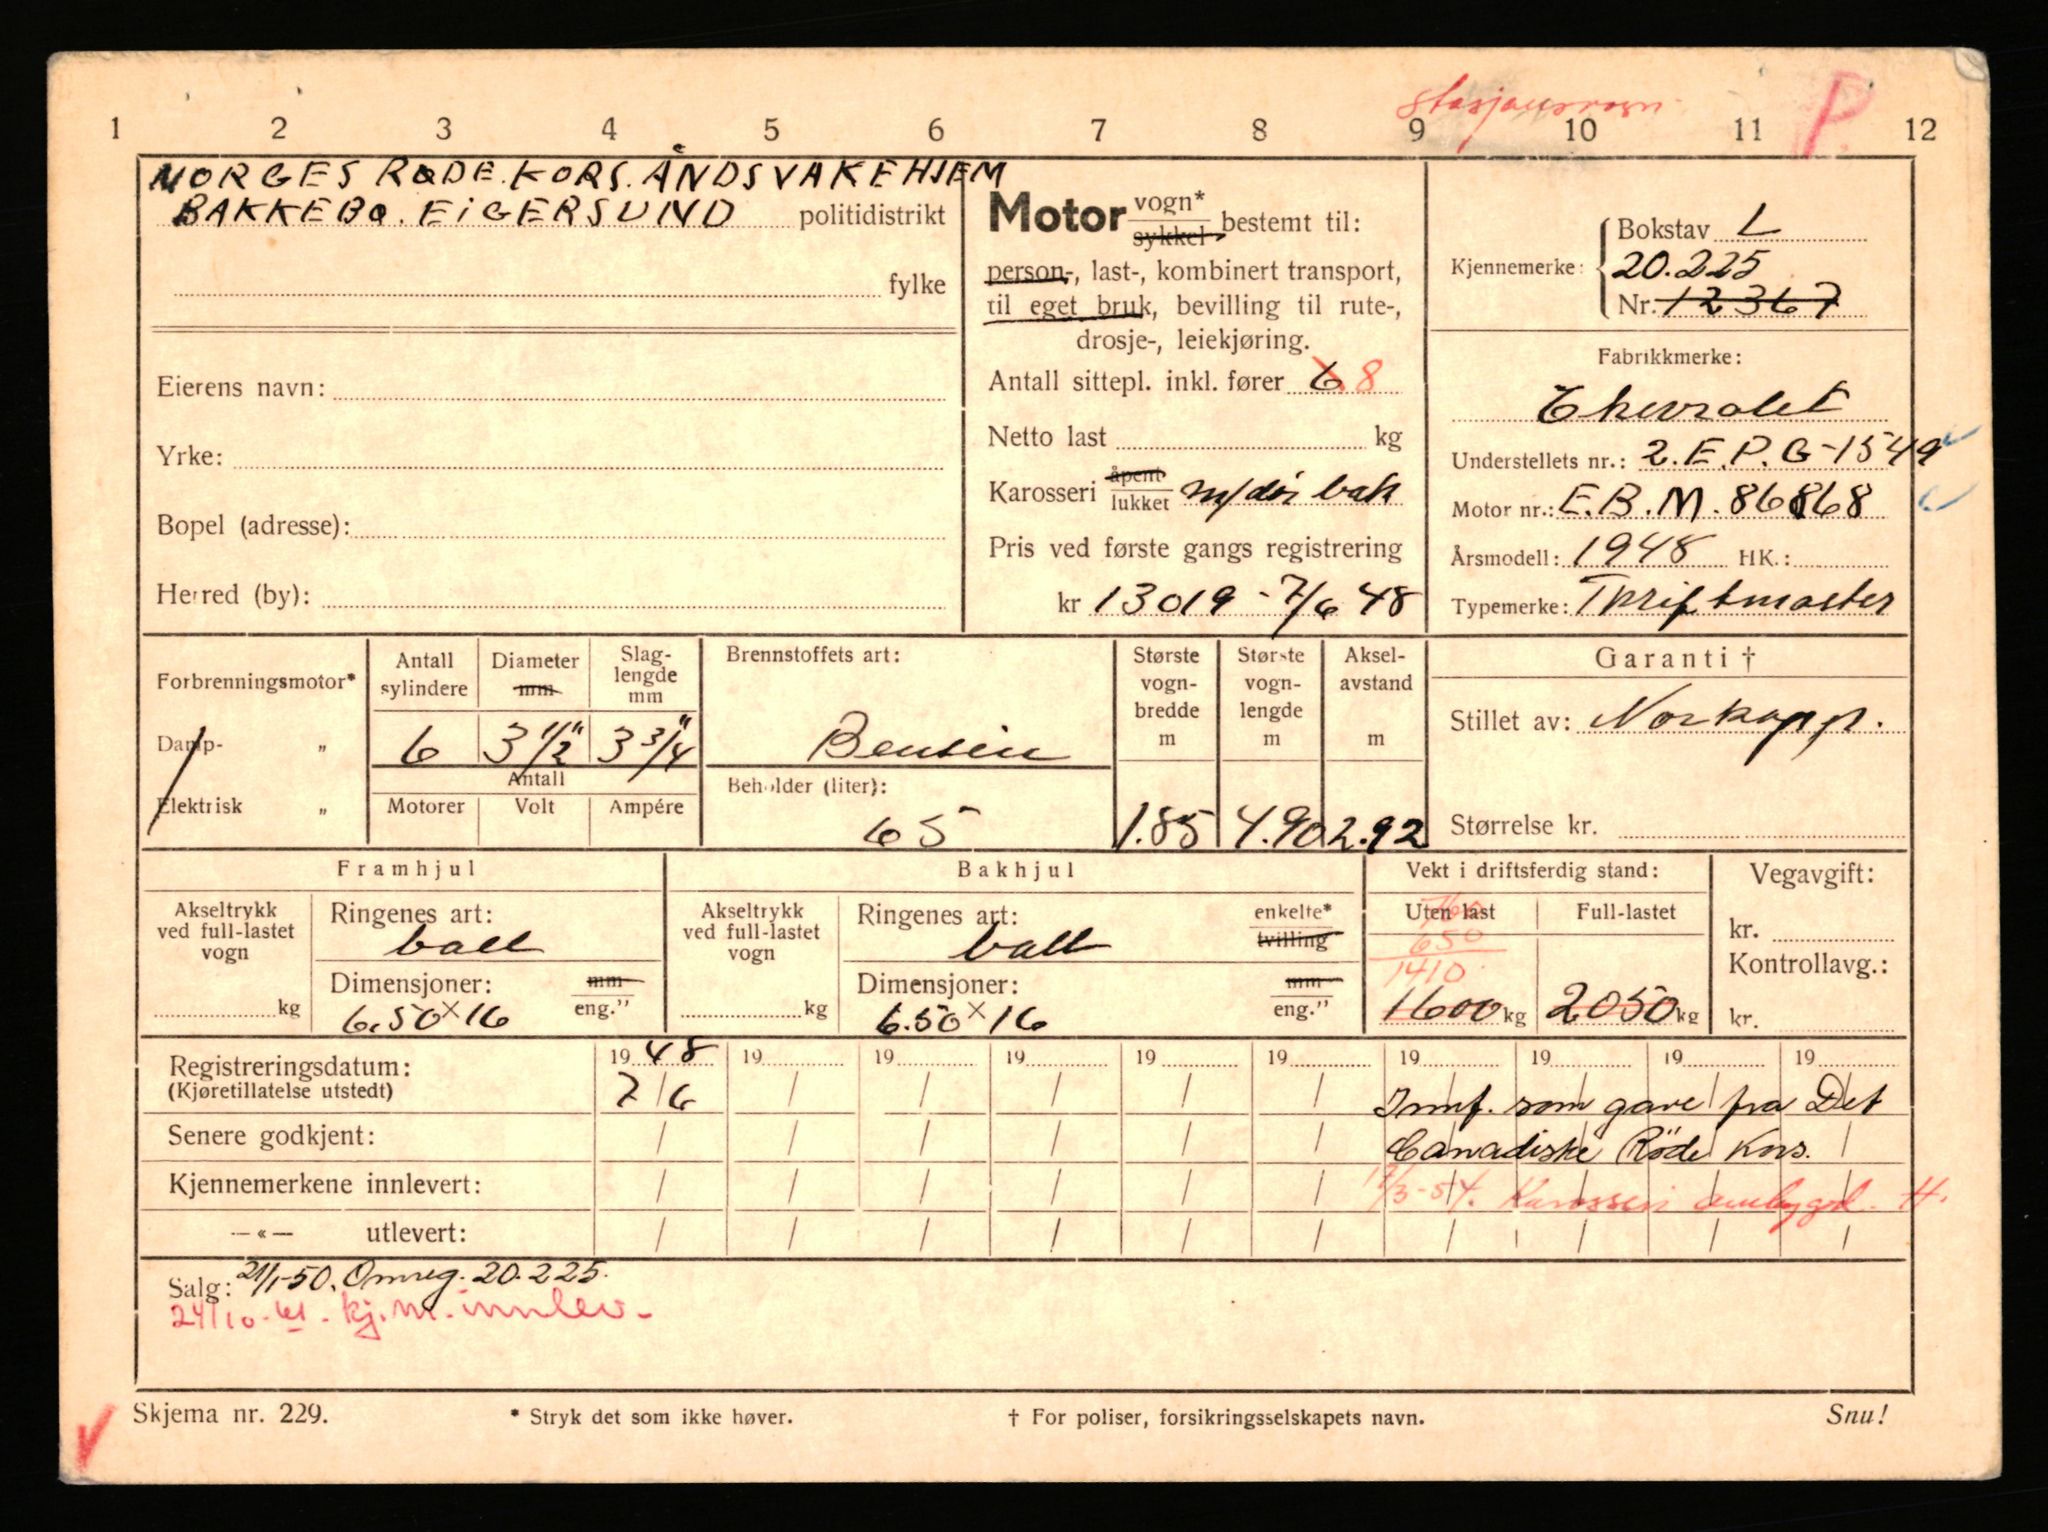 stasjonsvogn P
1 2 3 4 5 6 7 8 9 10 11 12
NORGES RØDE.KORS.ÅNDSVAKEHJEM
BAKKEBØ. EIGERSUND politidistrikt
fylke
Eierens navn:
Yrke:
Bopel (adresse):
Herred (by):
Motor vogn* sykkel bestemt til:
person-, last-, kombinert transport,
til eget bruk, bevilling til rute-,
drosje-, leiekjøring.
Antall sittepl. inkl. fører 6 8
Netto last kg
Karosseri åpent lukket m/dør bak
Pris ved første gangs registrering
kr 13019 - 7/6 48
Kjennemerke:
Bokstav L
20.225
Nr. 12367
Fabrikkmerke:
Chevrolet
Understellets nr.: 2.E.P.G-1549
Motor nr.: E.B.M. 86868
Årsmodell: 1948 HK.:
Typemerke: Thriftmaster
Forbrenningsmotor*
Damp- „
Elektrisk „
Antall sylindere
6
Diameter mm
3 1/2"
Slag-lengde mm
3 3/4"
Antall
Motorer Volt Ampére
Brennstoffets art:
Bensin
Beholder (liter):
65
Største vogn-bredde m
1.85
Største vogn-lengde m
4.90
Aksel-avstand m
2.92
Garanti †
Stillet av: Norkapp.
Størrelse kr.
Framhjul
Akseltrykk ved full-lastet vogn
kg
Ringenes art:
ball
Dimensjoner: mm eng."
6.50 x 16
Bakhjul
Akseltrykk ved full-lastet vogn
kg
Ringenes art: enkelte* tvilling
ball
Dimensjoner: mm eng."
6.50 x 16
Vekt i driftsferdig stand:
Uten last Full-lastet
760
650
1410
1600 kg 2050 kg
Vegavgift:
kr.
Kontrollavg.:
kr.
Registreringsdatum: 19 48 19 19 19 19 19 19 19 19 19
(Kjøretillatelse utstedt) 7/6 / / / / /
Innf. som gave fra Det
Senere godkjent: / / / / / /
Canadiske Röde Kors.
Kjennemerkene innlevert: / / / / / /
/3-54. Karosseri ombygd. H.
— « — utlevert: / / / / / / / / / /
Salg: 21/1-50. Omreg. 20.225.
24/10-61. kj.m. innlev-
Skjema nr. 229. * Stryk det som ikke høver. † For poliser, forsikringsselskapets navn. Snu!